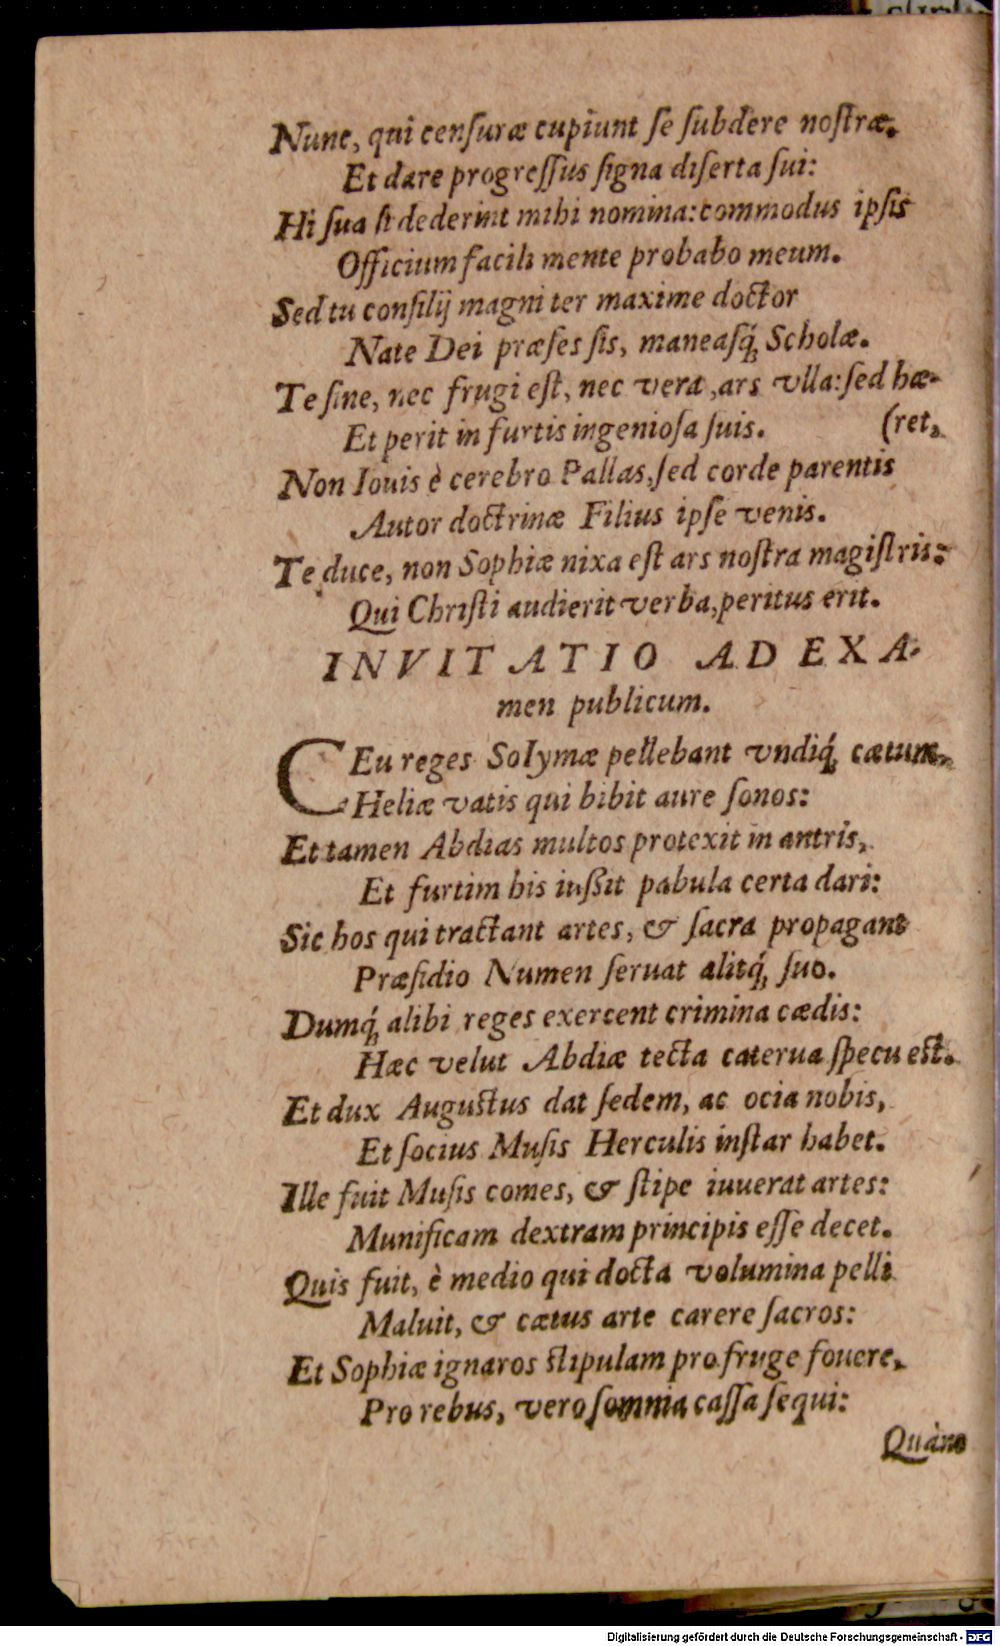 Nunc, qui cenſuræ cupiunt ſe ſubdere noſtræ.
Et dare progreſſus ſigna diſerta ſui:
Hi ſua ſi dederint mihi nomina: commodus ipſis
Officium facili mente probabo meum.
Sed tu conſilij magni ter maxime doctor
Nate Dei præſes ſis, maneasq́ꝫ Scholæ.
Te ſine, nec frugi eſt, nec vera, ars vlla: ſed hæ-
Et perit in furtis ingenioſa ſuis. (ret,
Non Iouis è cerebro Pallas, ſed corde parentis
Autor doctrinæ Filius ipſe venis.
Te duce, non Sophiæ nixa eſt ars noſtra magiſtris:
Qui Chriſti audierit verba, peritus erit.
INVITATIO AD EXA-
men publicum.
CEu reges Solymæ pellebant vndiq́ꝫ cætum,
Heliæ vatis qui bibit aure ſonos:
Et tamen Abdias multos protexit in antris,
Et furtim his iuſsit pabula certa dari:
Sic hos qui tractant artes, & ſacra propagant
Præſidio Numen ſeruat alitq́ꝫ ſuo.
Dumq́ꝫ alibi reges exercent crimina cædis:
Hæc velut Abdiæ tecta caterua ſpecu eſt.
Et dux Auguſtus dat ſedem, ac ocia nobis,
Et ſocius Muſis Herculis inſtar habet.
Ille fuit Muſis comes, & ſtipe iuuerat artes:
Munificam dextram principis eſſe decet.
Quis fuit, è medio qui docta volumina pelli
Maluit, & cætus arte carere ſacros:
Et Sophiæ ignaros ſtipulam pro fruge fouere,
Pro rebus, vero ſomnia caſſa ſequi:
Quàm
Digitalisierung gefördert durch die Deutsche Forschungsgemeinschaft - DFG